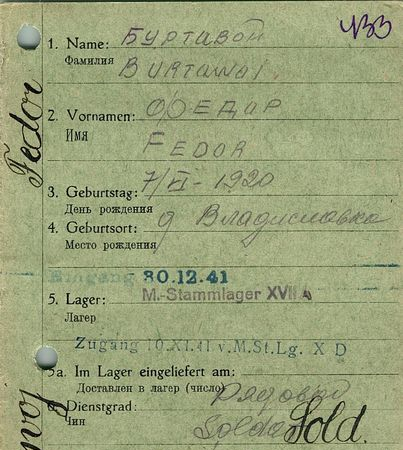 433
1. Name: БУРТАВОЙ
Фамилия BURTAWOI.
2. Vornamen: ФЕДАР
Имя FEDOR
3. Geburtstag: 7/XI-1920
День рождения
4. Geburtsort: д Владиславка
Место рождения
Eingang 30.12.41
5. Lager: M.-Stammlager XVII A
Лагерь
Zugang 10.XI.41 v. M.St.Lg. X D
5a. Im Lager eingeliefert am:
Доставлен в лагерь (число)
6. Dienstgrad: Рядовой
Чин Soldat Sold.
Fedor